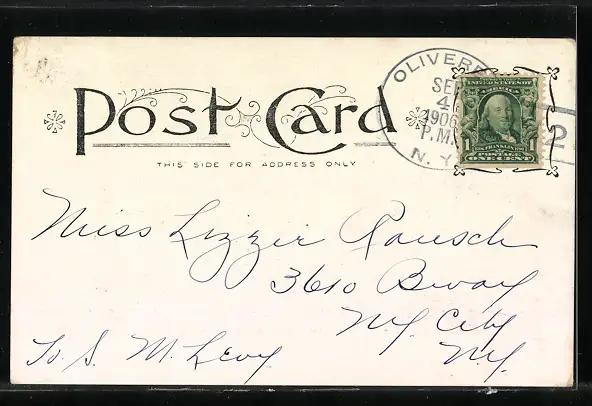 Post Card
THIS SIDE FOR ADDRESS ONLY
OLIVERE
SEP
4
1906
P.M.
N.Y.
2
UNITED STATES OF
AMERICA
1 1
FRANKLIN
POSTAGE
ONE CENT
Miss Lizzie Rausch
3610 Bway
N.Y. City
N.Y.
S. M. Levy